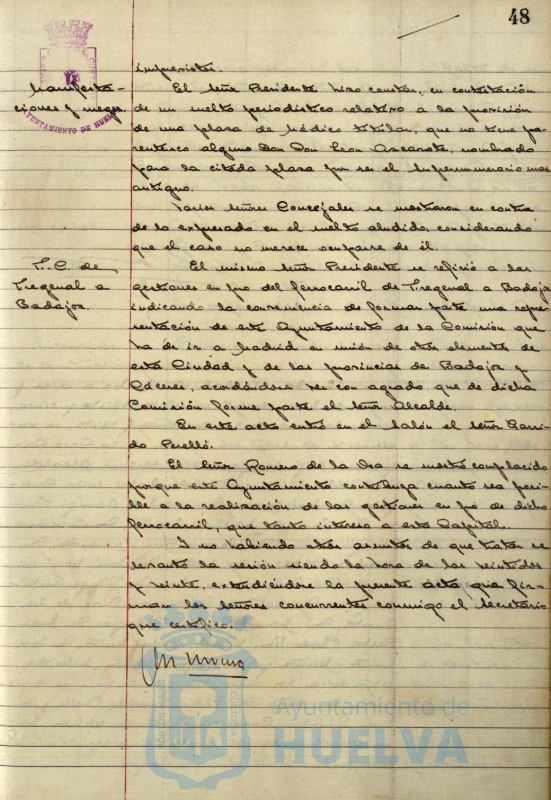 48
imprevistos.
Manifesta-
ciones y ruegos.
AYUNTAMIENTO DE HUELVA
El Señor Presidente hizo constar, en contestación
de un suelto periodístico relativo a la provisión
de una plaza de Médico titular, que no tiene pa-
rentesco alguno con Don Leon Azcarate, nombrado
para la citada plaza por ser el Supernumerario mas
antiguo.
Varios Señores Concejales se mostraron en contra
de lo expresado en el suelto aludido, considerando
que el caso no merece ocuparse de él.
F. C. de
Fregenal a
Badajoz.
El mismo Señor Presidente se refirió a las
gestiones en pro del ferrocarril de Fregenal a Badajoz
indicando la conveniencia de formar parte una repre-
sentación de este Ayuntamiento de la Comisión que
ha de ir a Madrid en unión de otros elementos de
esta Ciudad y de las provincias de Badajoz y
Cáceres, acordándose ver con agrado que de dicha
Comisión forme parte el Señor Alcalde.
En este acto entró en el Salón el Señor Garri-
do Perelló.
El Señor Romero de la Osa se mostró complacido
porque este Ayuntamiento contribuya cuanto sea posi-
ble a la realización de las gestiones en pró de dicho
ferrocarril, que tanto interesa a esta Capital.
Y no habiendo otros asuntos de que tratar se
levantó la sesión siendo la hora de las veintidos
y veinte, extendiéndose la presente acta que fir-
man los Señores concurrentes conmigo el Secretario
que certifico.
Ayuntamiento de
HUELVA